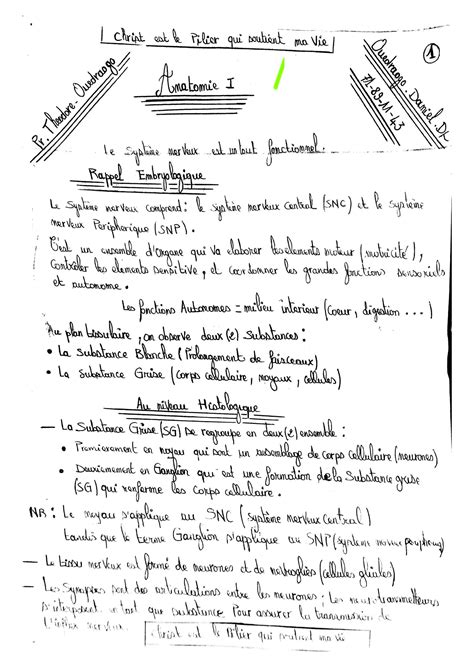 Christ est le Pilier qui soutient ma Vie
1
Pr. Théodore. Ouedraogo
Anatomie I
Ouedraogo. Daniel. Dk
71-89-11-43
Le Système nerveux est un tout fonctionnel.
Rappel Embryologique
Le Système nerveux comprend : le système nerveux central (SNC) et le système
nerveux Peripherique (SNP).
C'est un ensemble d'organe qui va elaborer les elements moteur (motricité),
Contrôler les elements sensitive, et coordonner les grandes fonctions sensoriels
et autonome.
Les fonctions Autonomes = milieu interieur (coeur, digestion ...)
Au plan tissulaire, on observe deux (2) Substances :
• La Substance Blanche (Prolongement de faisceaux)
• La Substance Grise (corps cellulaire, noyaux, cellules)
Au niveau Histologique
— La Substance Grise (SG) se regroupe en deux (2) ensemble :
• Premierement en noyau qui sont un ressemblage de corps cellulaire (neurones)
• Deuxiemement en Ganglion qui est une formation de la Substance grise
(SG) qui renferme les corps cellulaire.
NB : Le noyau s'applique au SNC (système nerveux central)
tandis que le terme Ganglion s'applique au SNP (système nerveux peripherique)
— Le tissu nerveux est formé de neurones et de nevroglies (cellules gliales)
— Les Synapses sont des articulations entre les neurones ; Les neurotransmetteurs
s'interposent en tant que substance Pour assurer la transmission de
l'influx nerveux.
Christ est le Pilier qui soutient ma vie